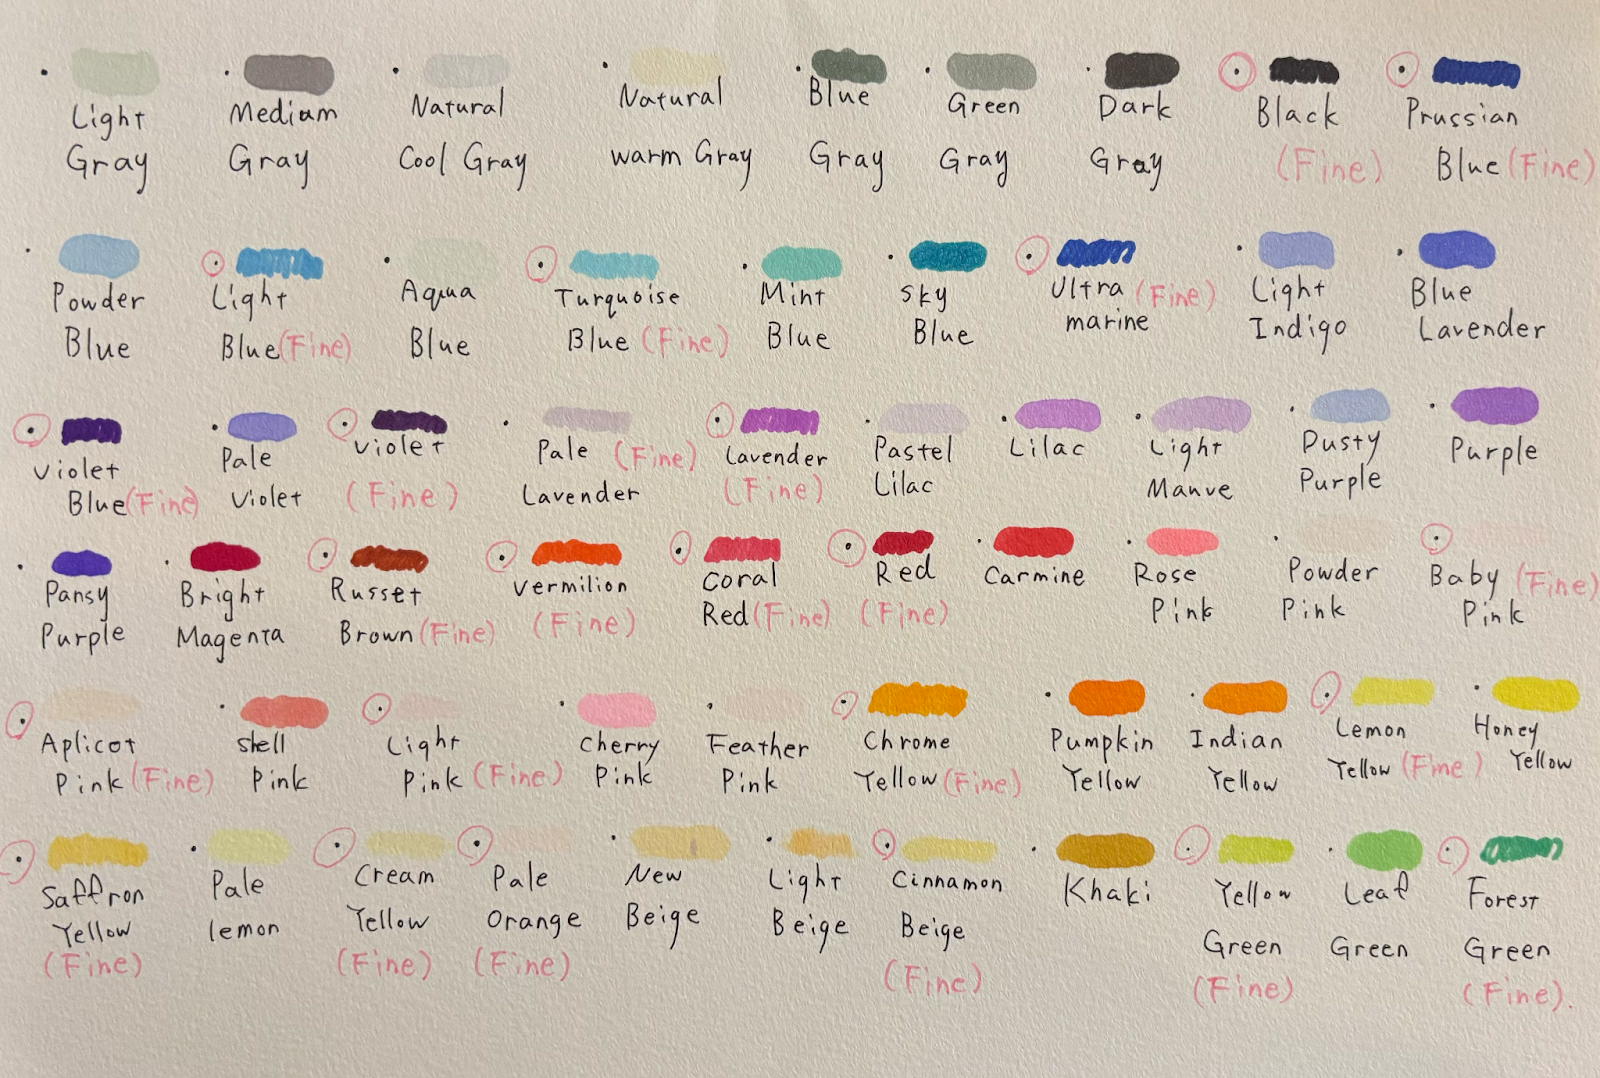 Light Medium Natural Natural Blue Green Dark Black Prussian
Gray Gray Cool Gray warm Gray Gray Gray Gray (Fine) Blue (Fine)
Powder Light Aqua Turquoise Mint Sky Ultra (Fine) Light Blue
Blue Blue (Fine) Blue Blue (Fine) Blue Blue marine Indigo Lavender
Violet Pale Violet Pale (Fine) Lavender Pastel Lilac Light Dusty Purple
Blue (Fine) Violet (Fine) Lavender (Fine) Lilac Manve Purple
Pansy Bright Russet Vermilion Coral Red Carmine Rose Powder Baby (Fine)
Purple Magenta Brown (Fine) (Fine) Red (Fine) (Fine) Pink Pink Pink
Aplicot Shell Light Cherry Feather Chrome Pumpkin Indian Lemon Honey
Pink (Fine) Pink Pink (Fine) Pink Pink Yellow (Fine) Yellow Yellow Yellow (Fine) Yellow
Saffron Pale Cream Pale New Light Cinnamon Khaki Yellow Leaf Forest
Yellow lemon Yellow Orange Beige Beige Beige Green Green Green
(Fine) (Fine) (Fine) (Fine) (Fine) (Fine).